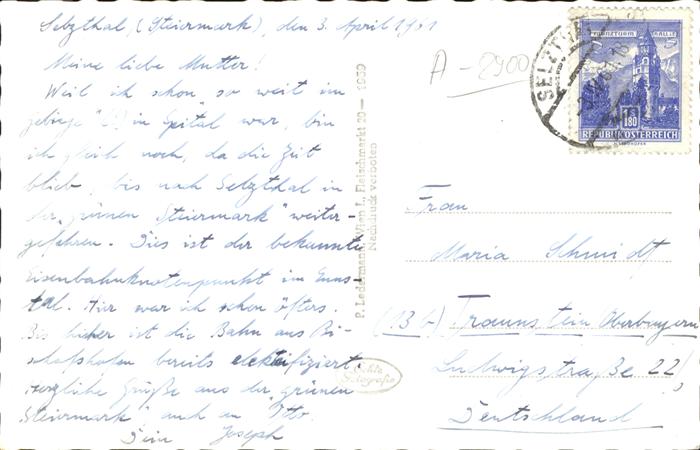 Selzthal (Steiermark), den 3. April 1961
Meine liebe Mutter!
Weil ich schon so weit im
Gebirge in Spital war, bin
ich gleich noch, da die Zeit
blieb, bis nach Selzthal in
der "grünen Steiermark" weiter-
gefahren. Dies ist der bekannte
Eisenbahnknotenpunkt im Enns-
tal. Hier war ich schon öfters.
Bis hicher ist die Bahn aus Bi-
schofshofen bereits elektrifiziert.
Herzliche Grüße aus der "grünen
Steiermark" auch an Otto
Dein Joseph
P. Ledermann, Wien I., Fleischmarkt 20 — 1959
Nachdruck verboten
Echte
Fotografie
A-2900
SELZTHAL
MÜNZTURM HALL i. T.
1.80
REPUBLIK ÖSTERREICH
Frau
Maria Schmidt
(13b) Traunstein Oberbayern
Ludwigstraße 22
Deutschland